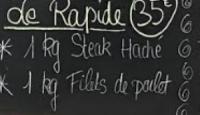 de Rapide 35€
* 1 kg Steak Haché 6
* 1 kg Filets de poulet 6